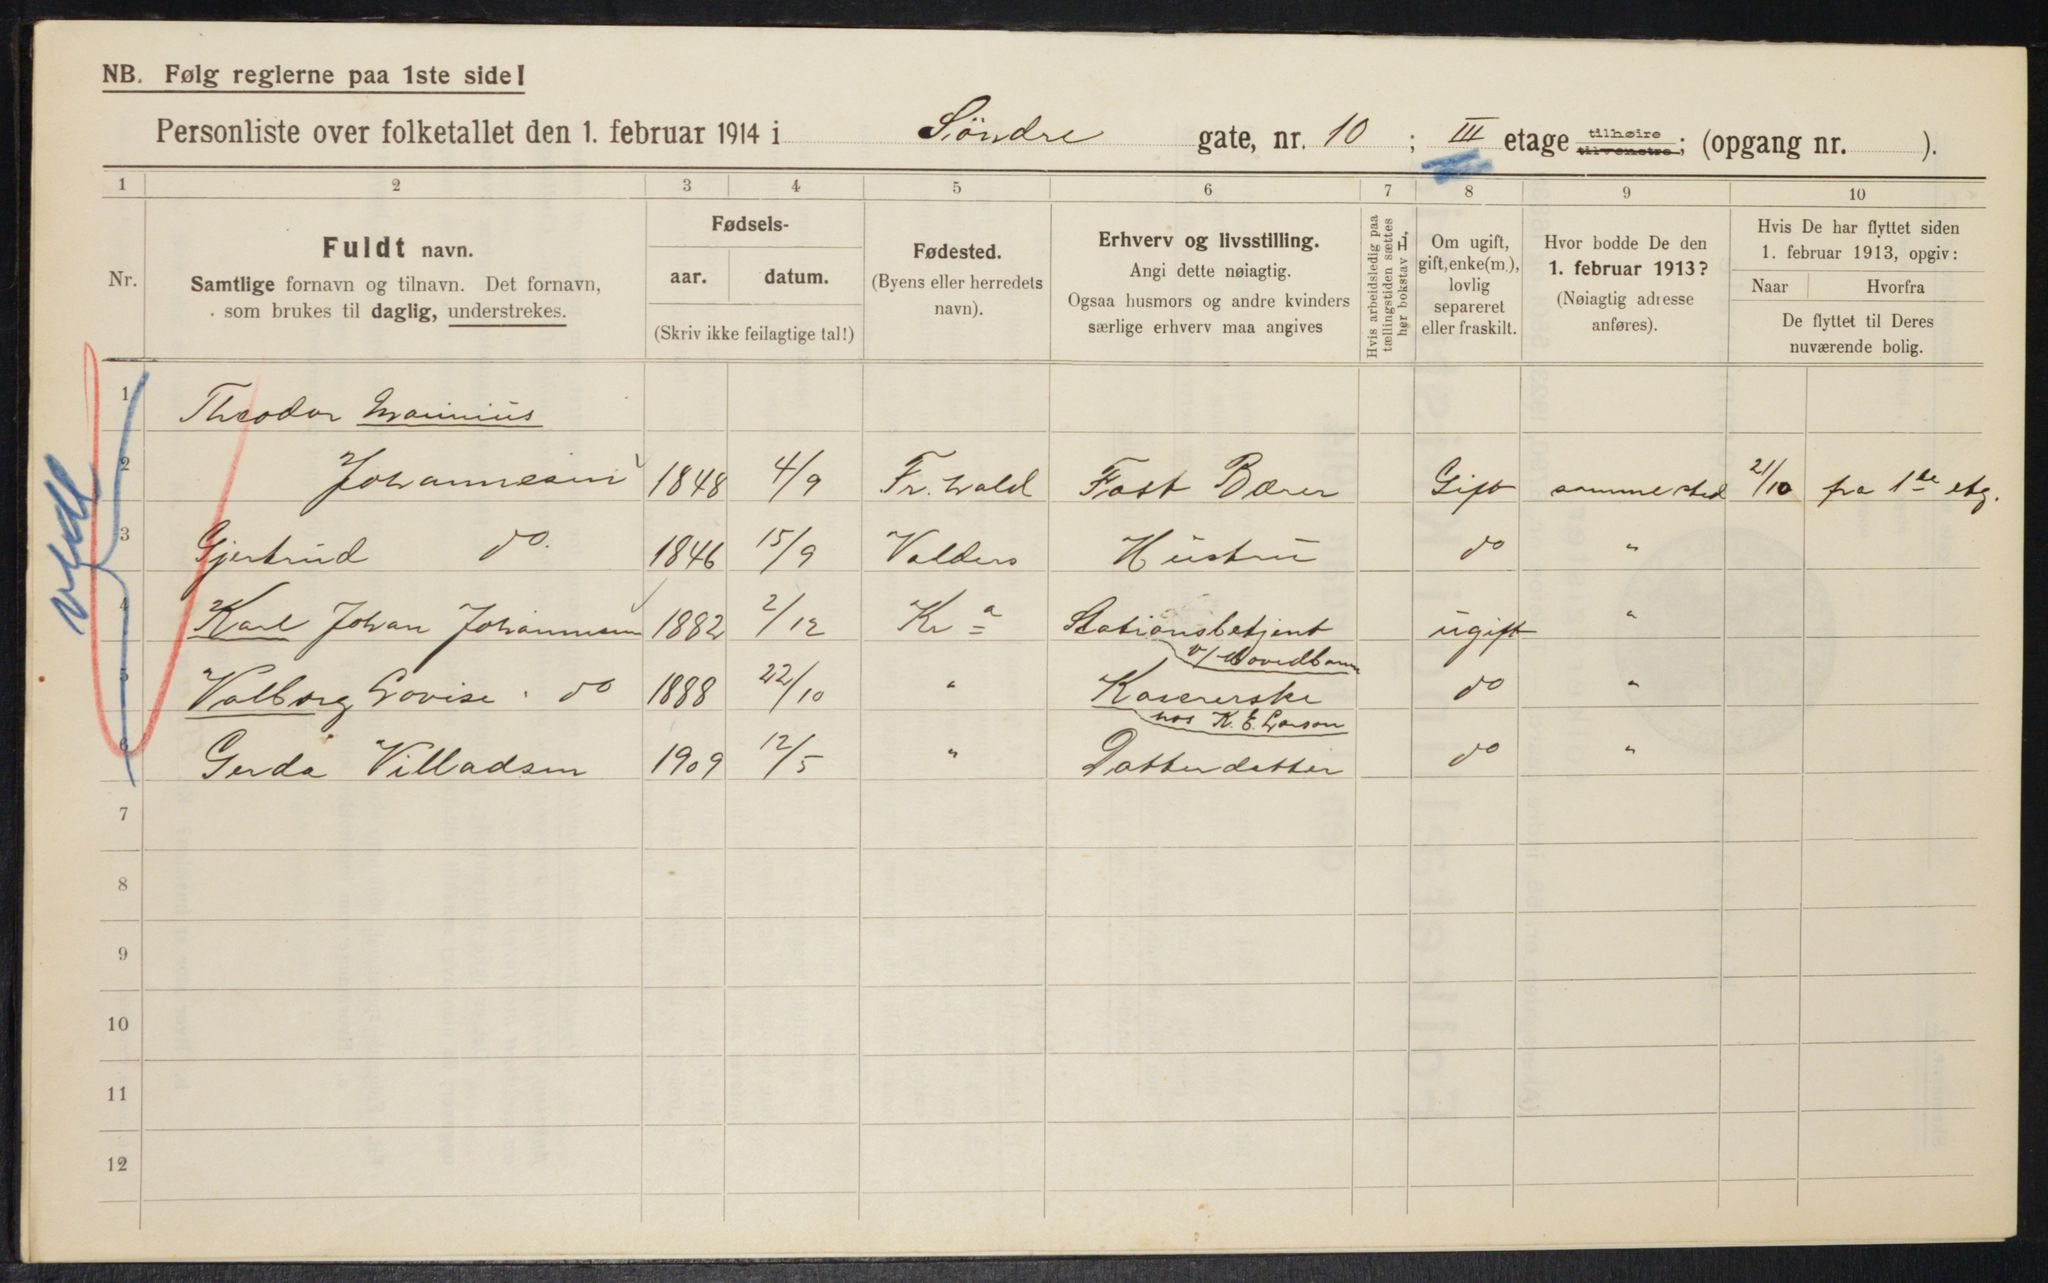 NB. Følg reglerne paa 1ste side!
Personliste over folketallet den 1. februar 1914 i Söndre gate, nr. 10 ; III etage tilhøire tilvenstre; (opgang nr. ).
1 2 3 4 5 6 7 8 9 10
Nr.
Fuldt navn.
Samtlige fornavn og tilnavn. Det fornavn,
som brukes til daglig, understrekes.
Fødsels-
aar. datum.
(Skriv ikke feilagtige tal!)
Fødested.
(Byens eller herredets
navn).
Erhverv og livsstilling.
Angi dette nøiagtig.
Ogsaa husmors og andre kvinders
særlige erhverv maa angives
Hvis arbeidsledig paa
tællingstiden sættes
her bokstav L.
Om ugift,
gift, enke(m.),
lovlig
separeret
eller fraskilt.
Hvor bodde De den
1. februar 1913?
(Nøiagtig adresse
anføres).
Hvis De har flyttet siden
1. februar 1913, opgiv:
Naar Hvorfra
De flyttet til Deres
nuværende bolig.
1 Theodor
2 Johannesen 1848 4/9 Fr.hald Fast Bærer Gift samme sted 21/10 fra 1ste etg.
3 Gjertrud do. 1846 15/9 Valders Hüstrü do "
4 Karl Johan Johannesen 1882 2/12 Kra Stationsbetjent ugift "
v/ Hovedbanen
5 Valborg Lovise do 1888 22/10 " Kasererske do "
hos K. E. Larson
6 Gerda Villadsen 1909 12/5 " Datterdatter do "
7
8
9
10
11
12